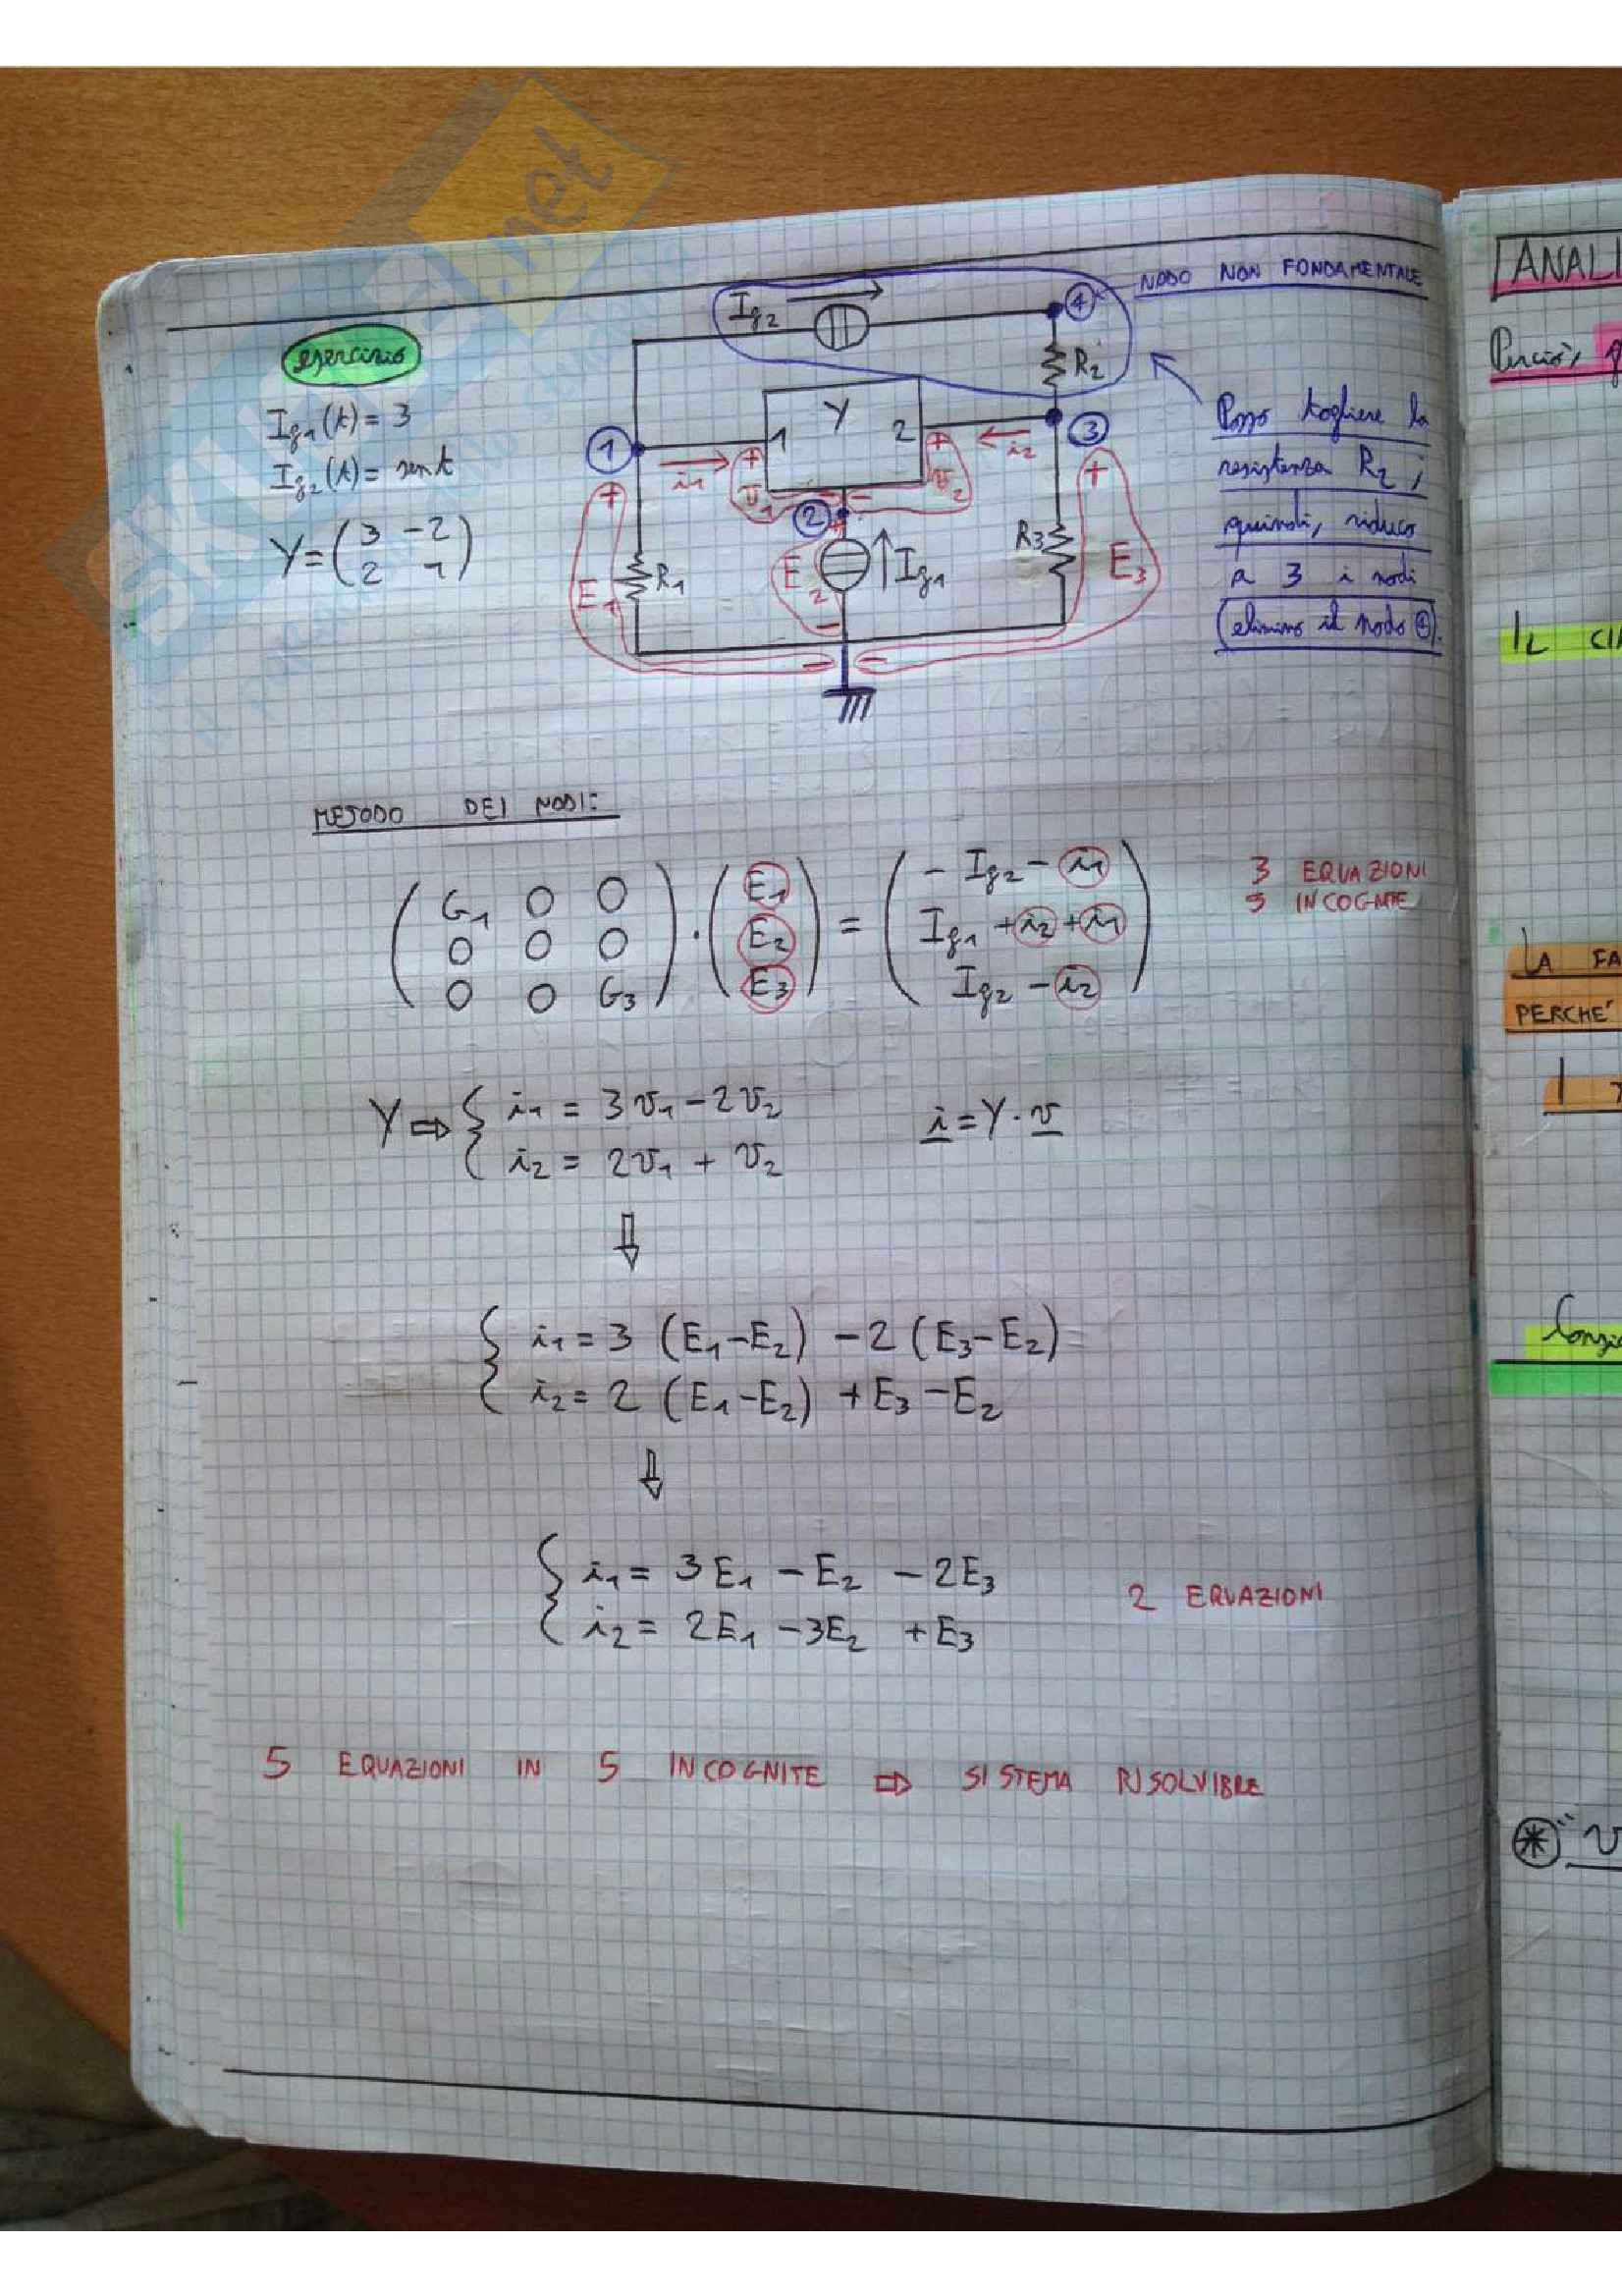 SKUOLA.net
esercizio
Ig1(t) = 3
Ig2(t) = sen t
Y = (3 -2
2 1)
Ig2
4
NODO NON FONDAMENTALE
R2
Y
1
2
1
3
i1
i2
+
+
v1
v2
-
-
2
+
+
+
E1
R1
E2
Ig1
R3
E3
-
-
-
Posso togliere la
resistenza R2;
quindi, riduco
a 3 i nodi
(elimino il nodo 4).
METODO DEI NODI:
(G1 0 0
0 0 0
0 0 G3) · (E1
E2
E3) = (- Ig2 - i1
Ig1 + i2 + i1
Ig2 - i2)
3 EQUAZIONI
5 INCOGNITE
Y ⇒ { i1 = 3v1 - 2v2
i2 = 2v1 + v2
i = Y · v
⇓
{ i1 = 3 (E1-E2) - 2 (E3-E2)
i2 = 2 (E1-E2) + E3 - E2
⇓
{ i1 = 3E1 - E2 - 2E3
i2 = 2E1 - 3E2 + E3
2 EQUAZIONI
5 EQUAZIONI IN 5 INCOGNITE ⇒ SISTEMA RISOLVIBLE
ANALI
Perciò,
IL CI
LA FA
PERCHE'